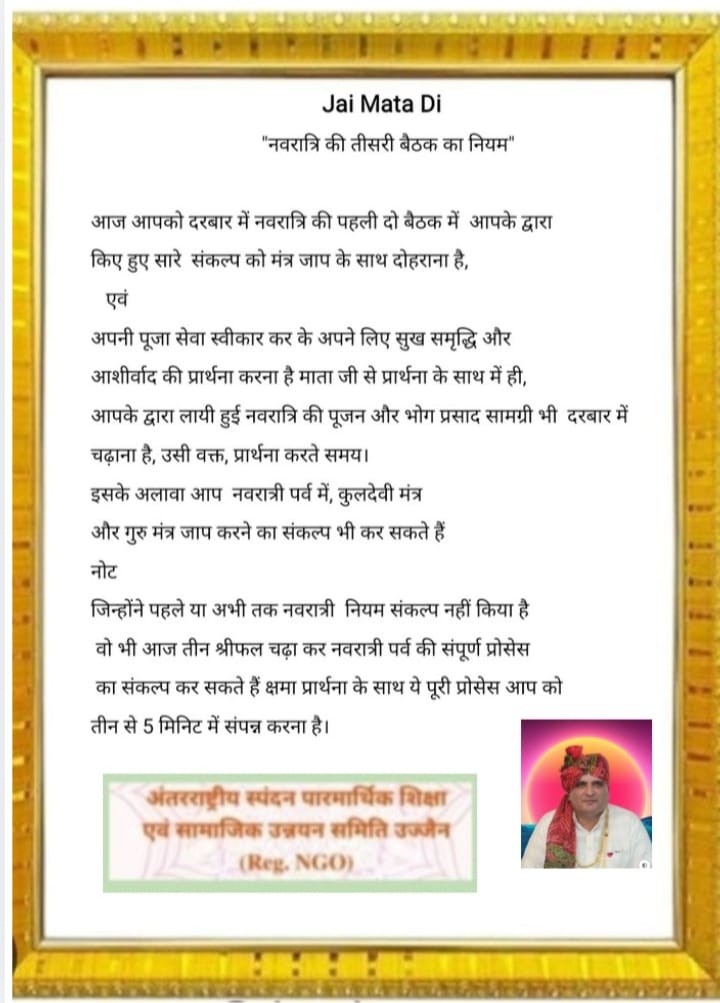 Jai Mata Di
"नवरात्रि की तीसरी बैठक का नियम"
आज आपको दरबार में नवरात्रि की पहली दो बैठक में आपके द्वारा
किए हुए सारे संकल्प को मंत्र जाप के साथ दोहराना है,
एवं
अपनी पूजा सेवा स्वीकार कर के अपने लिए सुख समृद्धि और
आशीर्वाद की प्रार्थना करना है माता जी से प्रार्थना के साथ में ही,
आपके द्वारा लायी हुई नवरात्रि की पूजन और भोग प्रसाद सामग्री भी दरबार में
चढ़ाना है, उसी वक्त, प्रार्थना करते समय।
इसके अलावा आप नवरात्री पर्व में, कुलदेवी मंत्र
और गुरु मंत्र जाप करने का संकल्प भी कर सकते हैं
नोट
जिन्होंने पहले या अभी तक नवरात्री नियम संकल्प नहीं किया है
वो भी आज तीन श्रीफल चढ़ा कर नवरात्री पर्व की संपूर्ण प्रोसेस
का संकल्प कर सकते हैं क्षमा प्रार्थना के साथ ये पूरी प्रोसेस आप को
तीन से 5 मिनिट में संपन्न करना है।
अंतरराष्ट्रीय स्पंदन पारमार्थिक शिक्षा
एवं सामाजिक उन्नयन समिति उज्जैन
(Reg. NGO)